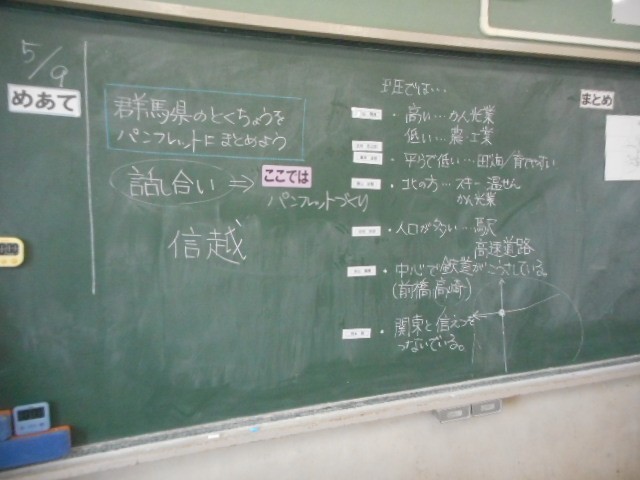 5/9
めあて
群馬県のとくちょうを
パンフレットにまとめよう
話し合い ⇒ ここでは
パンフレットづくり
信越
では…
まとめ
・高い…かん光業
低い…農・工業
・平らで低い…田畑/育てやすい
・北の方…スキー 温せん
かん光業
・人口が多い…駅
高速道路
・中心で鉄道がこうさしている。
(前橋・高崎)
・関東と信えつを
つないでいる。